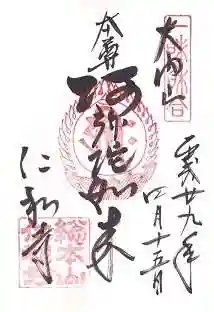 大内山
平成廿九年
四月十五日
本尊
阿弥陀如来
仁和寺
総本山